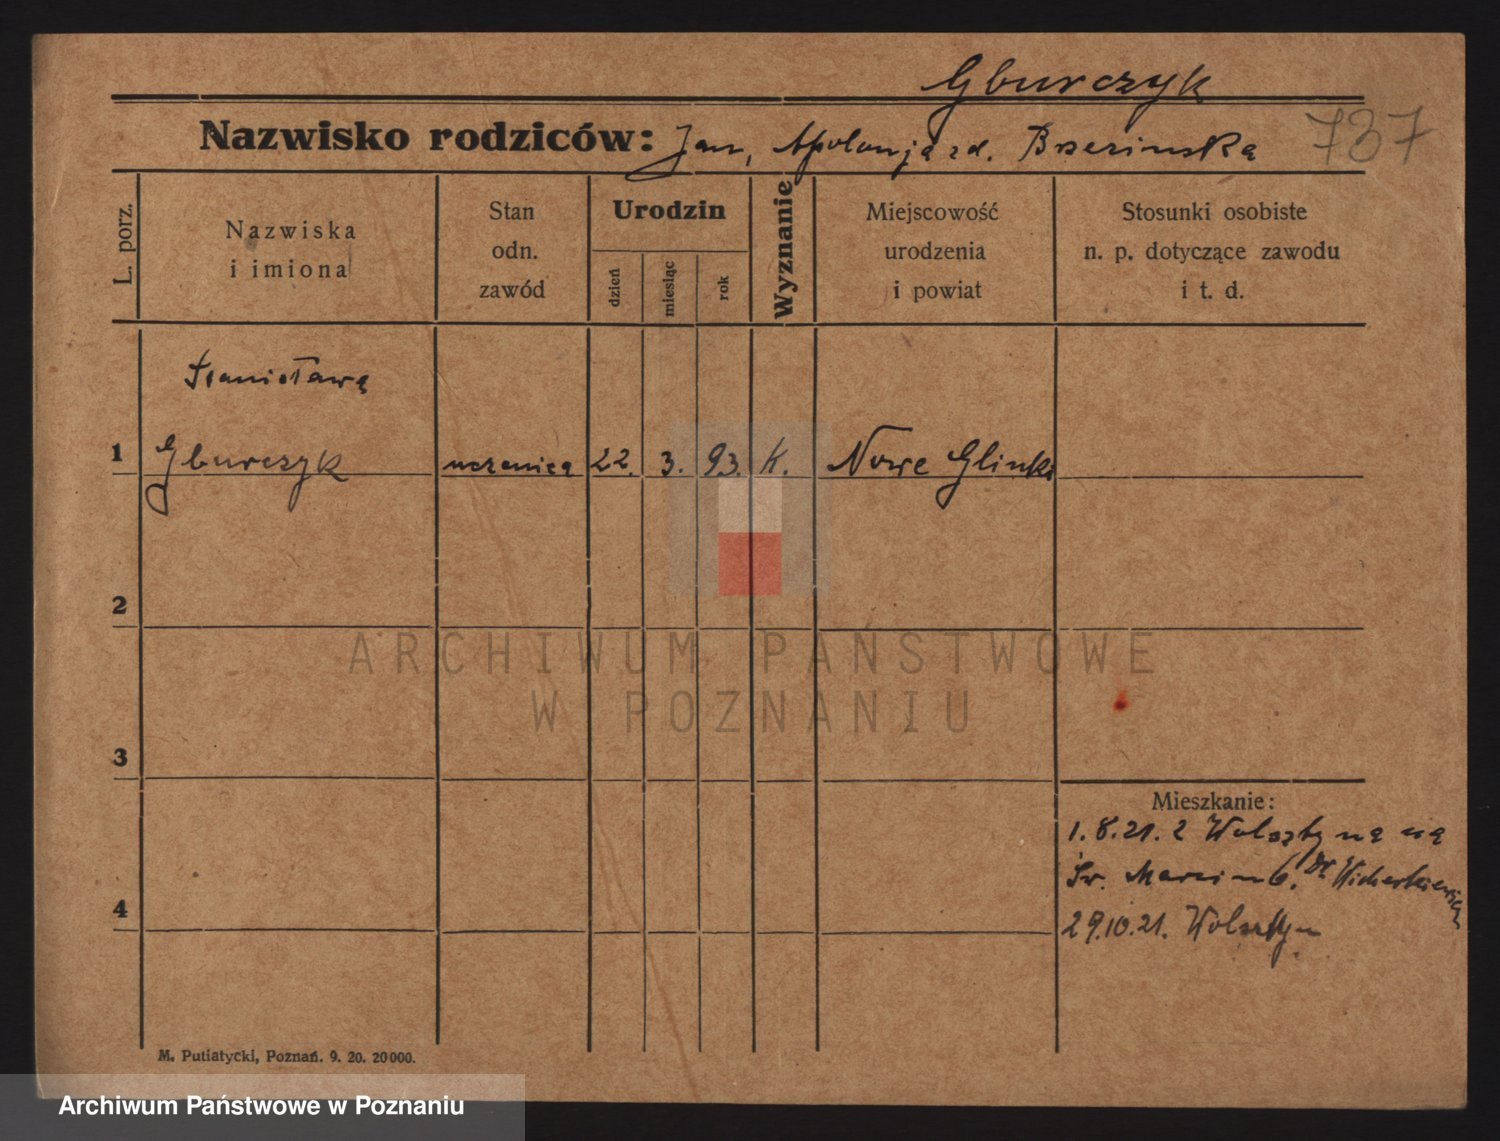 Gburczyk
Nazwisko rodziców: Jan, Apolonja zd. Brzezinska 737
L. porz.
Nazwiska
i imiona
Stan
odn.
zawód
Urodzin
dzień
miesiąc
rok
Wyznanie
Miejscowość
urodzenia
i powiat
Stosunki osobiste
n. p. dotyczące zawodu
i t. d.
Stanisława
1 Gburczyk uczenica 22. 3. 93. K. Nowe Glinki
2
ARCHIWUM PAŃSTWOWE
W POZNANIU
3
Mieszkanie:
1.8.21. z Wolsztyna na
Św. Marcin 6. Dr Wicherkiewicz
4
29.10.21. Wolsztyn
M. Putiatycki, Poznań. 9. 20. 20000.
Archiwum Państwowe w Poznaniu